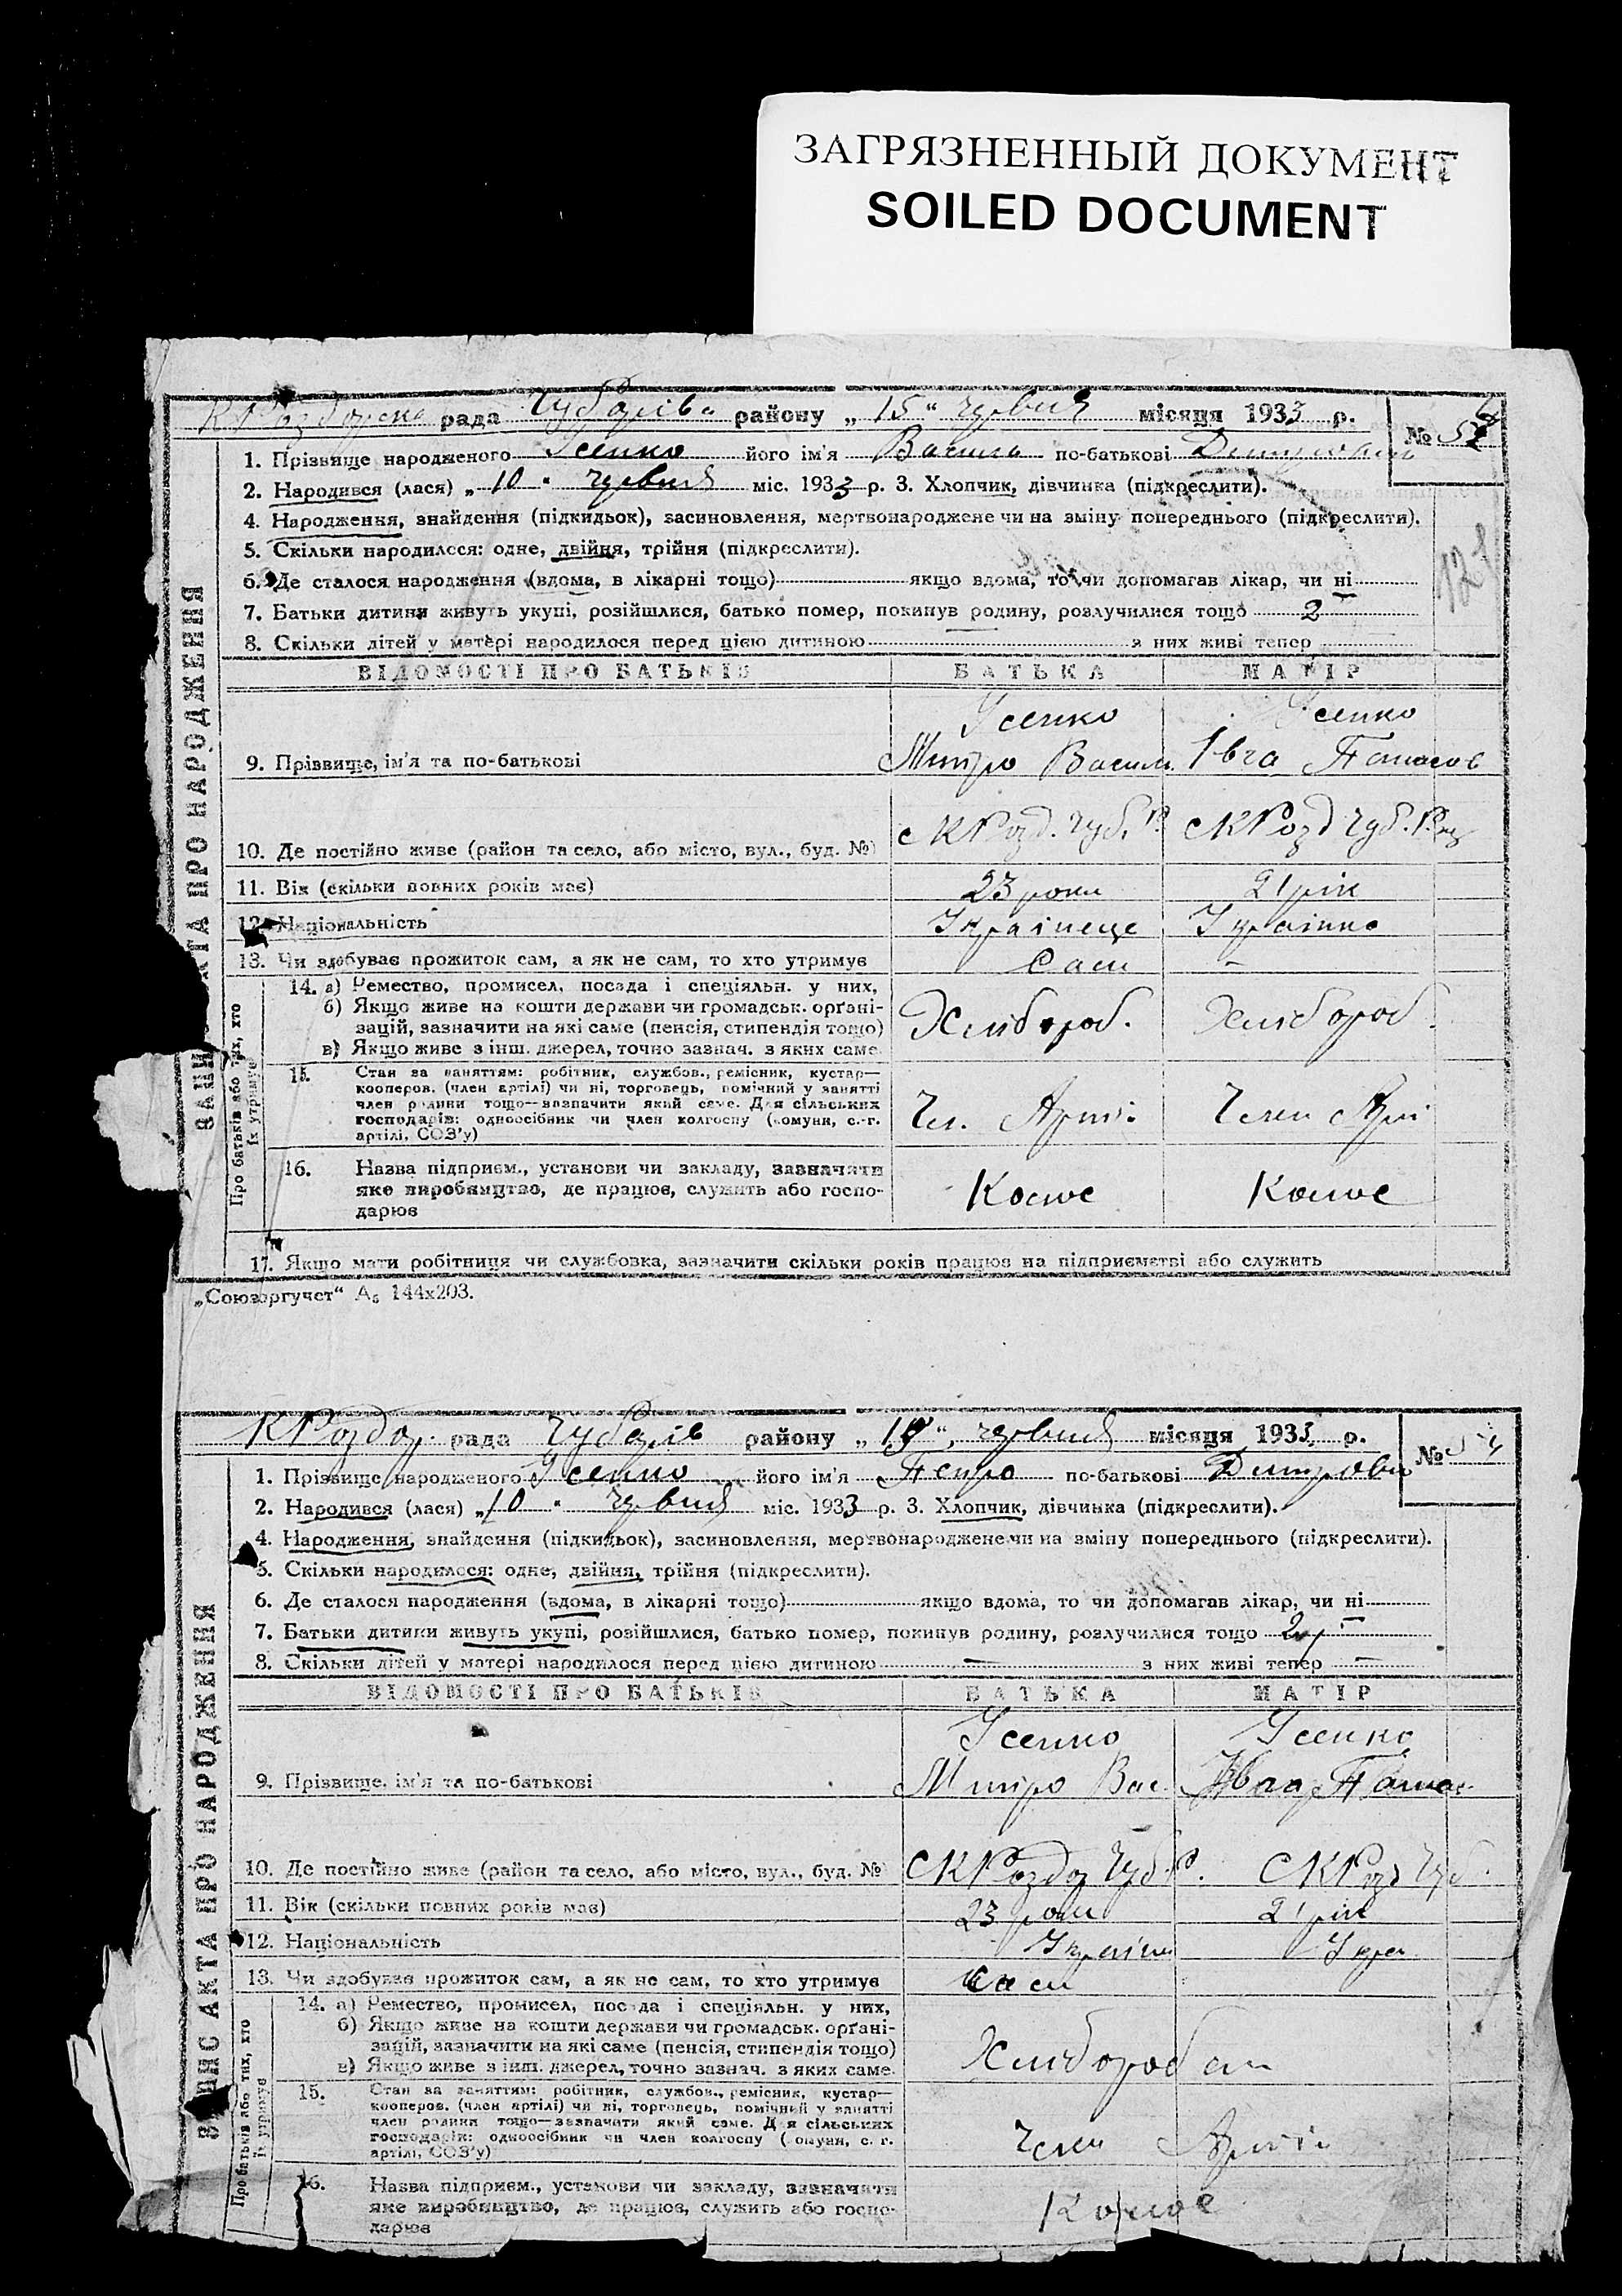 ЗАГРЯЗНЕННЫЙ ДОКУМЕНТ
SOILED DOCUMENT
рада Чубарівс району „15“ червня місяця 1933 р.
№
1. Прізвище народженого Усенко його ім'я Василь по-батькові
2. Народився (лася) „10“ червня міс. 1933 р. 3. Хлопчик, дівчинка (підкреслити).
4. Народження, знайдення (підкидьок), засиновлення, мертвонароджене чи на зміну попереднього (підкреслити).
5. Скільки народилося: одне, двійня, трійня (підкреслити).
6. Де сталося народження (вдома, в лікарні тощо) якщо вдома, то чи допомагав лікар, чи ні
7. Батьки дитини живуть укупі, розійшлися, батько помер, покинув родину, розлучилися тощо 2
8. Скільки дітей у матері народилося перед цією дитиною з них живі тепер
ЗАПИС АКТА ПРО НАРОДЖЕННЯ
ВІДОМОСТІ ПРО БАТЬКІВ БАТЬКА МАТІР
Усенко Усенко
9. Прізвище, ім'я та по-батькові Митро Васил. Івга Панасов
10. Де постійно живе (район та село, або місто, вул., буд. №) с КРозд. Чуб. Р. с КРозд Чуб. Р
11. Вік (скільки повних років має) 23 роки 21 рік
12. Національність Українець Українка
13. Чи здобуває прожиток сам, а як не сам, то хто утримує Сам -
Про батьків або тих, хто їх утримує
14. а) Ремество, промисел, посада і спеціяльн. у них,
б) Якщо живе на кошти держави чи громадськ. органі-
зацій, зазначити на які саме (пенсія, стипендія тощо) Хлібороб. Хлібороб.
в) Якщо живе з інш. джерел, точно зазнач. з яких саме.
15. Стан за заняттям: робітник, службов., ремісник, кустар—
кооперов. (член артілі) чи ні, торговець, помічний у занятті
член родини тощо—зазначити який саме. Для сільських
господарів: одноосібник чи член колгоспу (комуни, с.-г.
артілі, СОЗ'у) Чл. Артіл Член Арті
16. Назва підприєм., установи чи закладу, зазначити
яке виробництво, де працює, служить або госпо-
дарює
17. Якщо мати робітниця чи службовка, зазначити скільки років працює на підприємстві або служить
„Союзоргучет“ А₅ 144х203.
КРоздор. рада Чубарів району червня місяця 193 р.
№
1. Прізвище народженого Усенко його ім'я Петро по-батькові Дмитрович
2. Народився (лася) „10“ червня міс. 1933 р. 3. Хлопчик, дівчинка (підкреслити).
4. Народження, знайдення (підкидьок), засиновлення, мертвонароджене чи на зміну попереднього (підкреслити).
5. Скільки народилося: одне, двійня, трійня (підкреслити).
6. Де сталося народження (вдома, в лікарні тощо) якщо вдома, то чи допомагав лікар, чи ні
7. Батьки дитини живуть укупі, розійшлися, батько помер, покинув родину, розлучилися тощо 2
8. Скільки дітей у матері народилося перед цією дитиною — з них живі тепер —
ЗАПИС АКТА ПРО НАРОДЖЕННЯ
ВІДОМОСТІ ПРО БАТЬКІВ БАТЬКА МАТІР
Усенко Усенко
9. Прізвище, ім'я та по-батькові Митро Вас. Івга Панас.
10. Де постійно живе (район та село, або місто, вул., буд. №) с КРоздор Чуб. Р. с КРозд Чуб.
11. Вік (скільки повних років має) 23 роки 21 рік
12. Національність Україн Укра
13. Чи здобуває прожиток сам, а як не сам, то хто утримує сам
Про батьків або тих, хто їх утримує
14. а) Ремество, промисел, посада і спеціяльн. у них,
б) Якщо живе на кошти держави чи громадськ. органі-
зацій, зазначити на які саме (пенсія, стипендія тощо)
в) Якщо живе з інш. джерел, точно зазнач. з яких саме.
15. Стан за заняттям: робітник, службов., ремісник, кустар—
кооперов. (член артілі) чи ні, торговець, помічний у занятті
член родини тощо—зазначити який саме. Для сільських
господарів: одноосібник чи член колгоспу (комуни, с. г.
артілі, СОЗ'у) Член Артіл
16. Назва підприєм., установи чи закладу, зазначити
яке виробництво, де працює, служить або госпо-
дарює